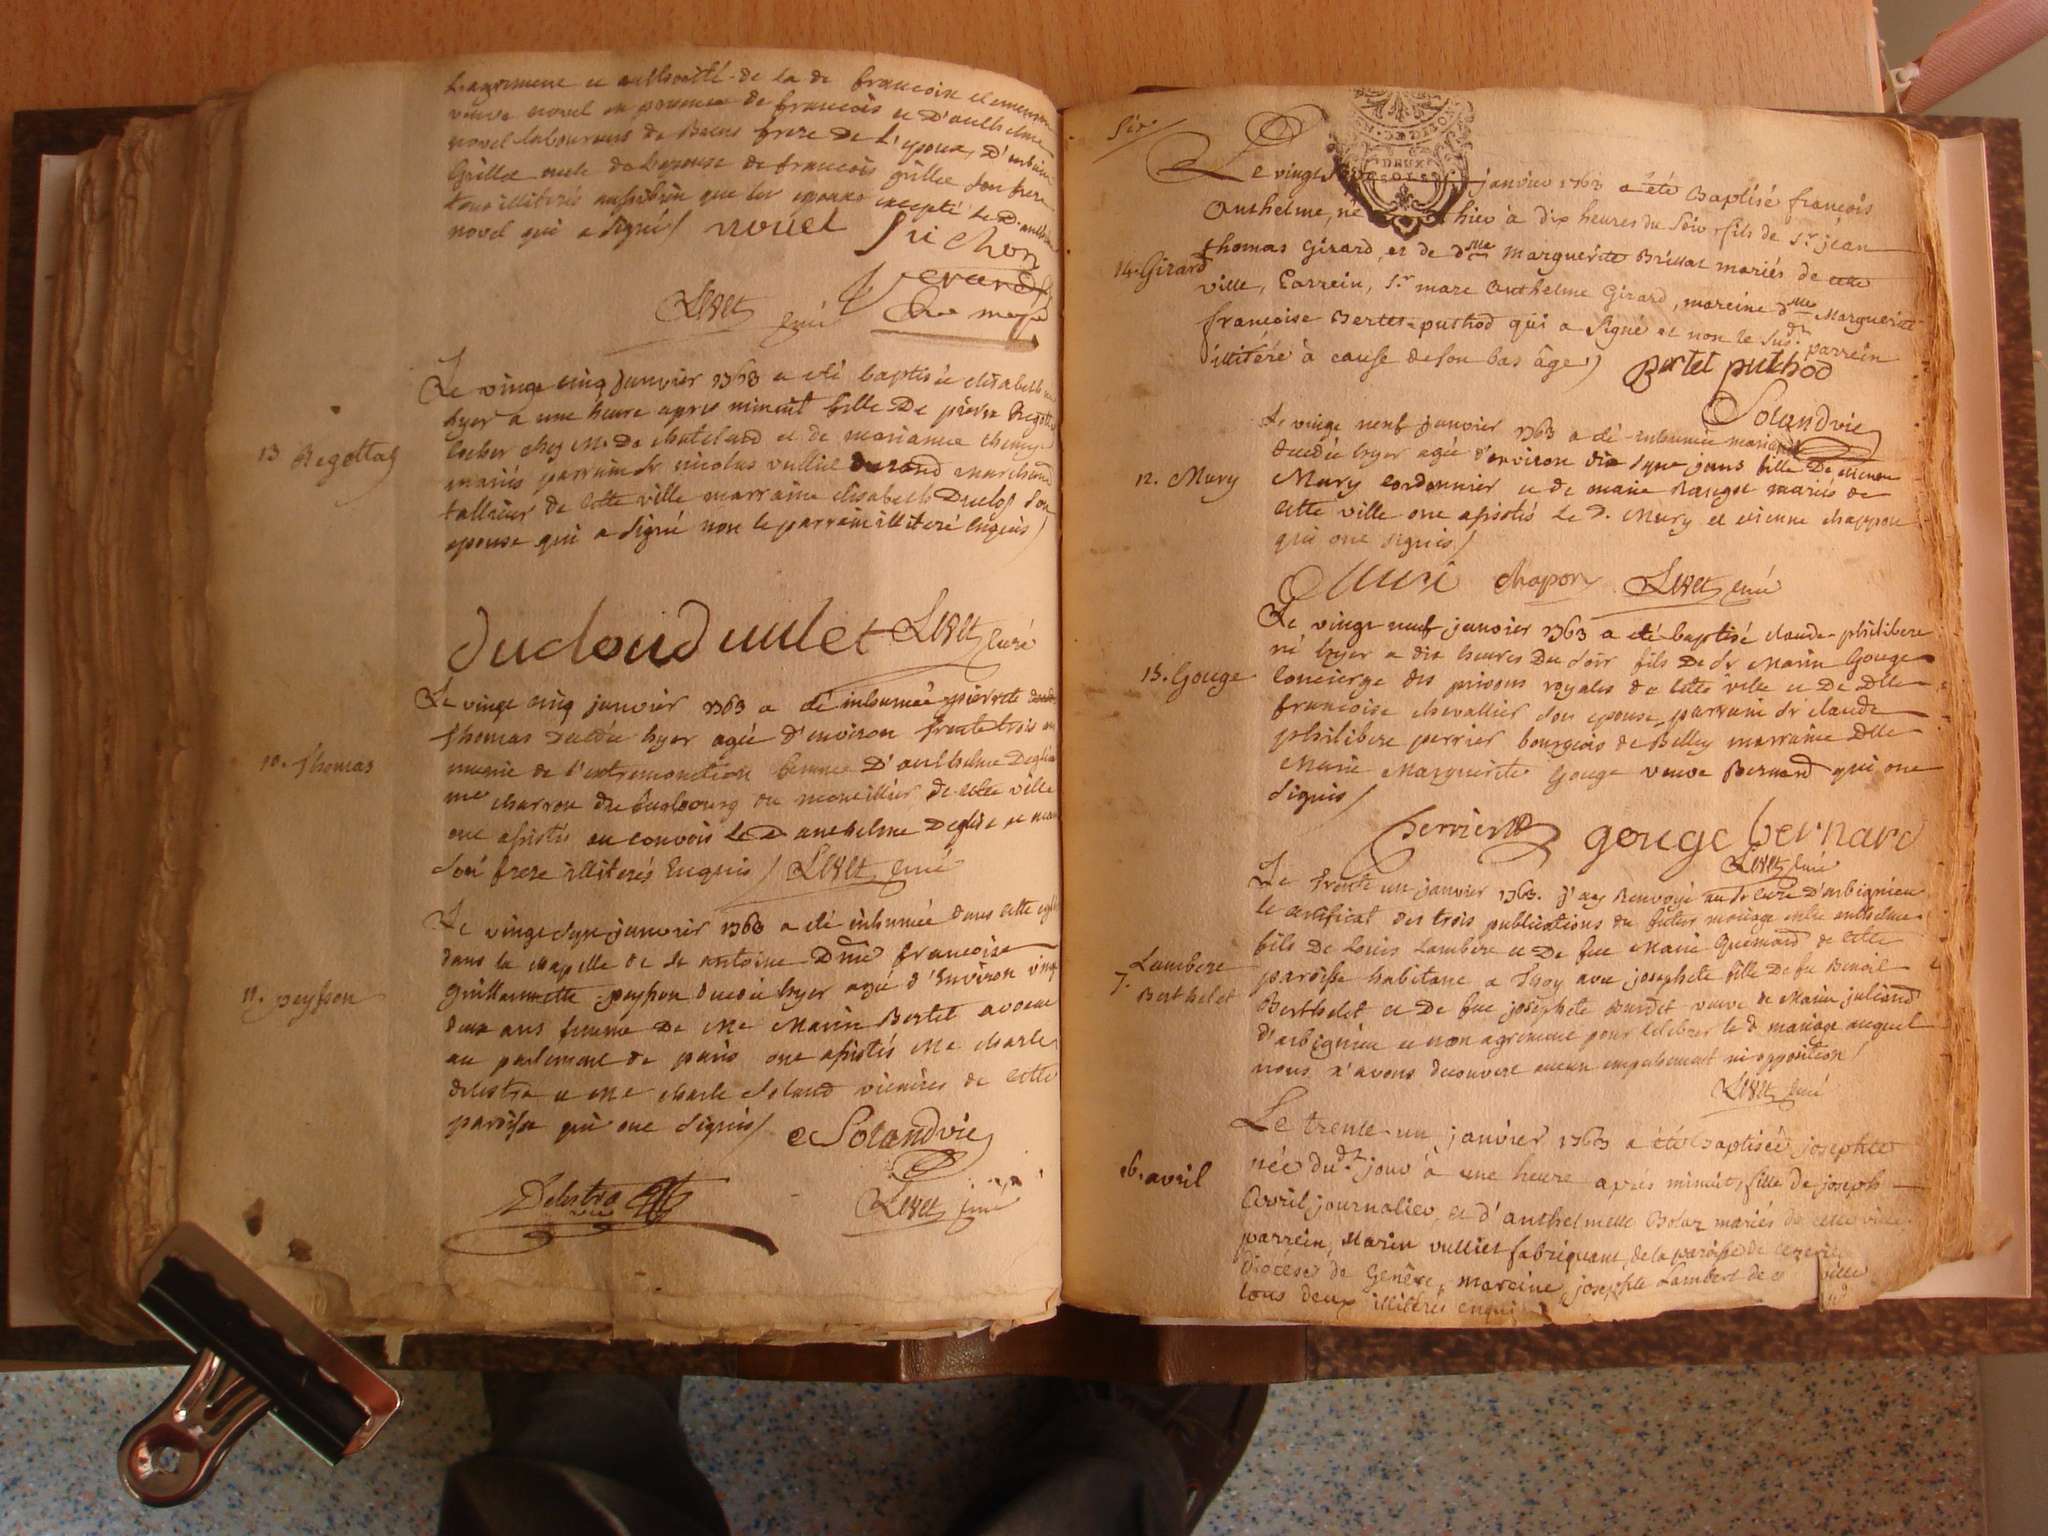 L'agrement et authorité de la de francoise clemenson
veuve novel en presence de francois et d'anthelme
novel laboureurs de Bens frere de l'epoux, d'
Grillet oncle de l'epouse de francois grillet son frere
tous illiterés aussi bien que les epoux excepté le d. anthelme
novel qui a signé / novel Richon
Levet curé
Le vingt cinq janvier 1763 a été baptisée elisabeth née
hyer a une heure apres minuit fille de pierre Regottaz
cocher chez Mr De chatelard et de marianne
mariés parrain sr nicolas vulliet marchand
tallieur de cette ville marraine elisabeth Duclos son
epouse qui a signé non le parrain illiteré enquis /
13 Regottaz
duclou d vulet Levet curé
Le vingt cinq janvier 1763 a été inhumée pierrete
thomas decedée hyer agée d'environ trente trois ans
munie de l'extremonction femme d'anthelme Deglise
me charron du fauxbourg du de cette ville
ont assistés au convois le D anthelme Deglise et
son frere illiterés enquis / Levet curé
10. thomas
Le vingt sept janvier 1763 a été inhumée dans cette eglise
dans la chapelle de st antoine Dme francoise
guillaumette peysson decedée hyer agée d'environ vingt
deux ans femme de Me Marin Bertet avocat
au parlement de paris ont assistés Me charle
delestra et Me charle Soland vicaires de cette
paroisse qui ont signés /
11. peysson
Solandvic
Delestra vic
Levet curé
Six.
DEUX
SOLS
Le vingt janvier 1763 a été Baptisé françois
Anthelme, né hier à dix heures du soir fils de Sr jean
thomas Girard, et de dlle marguerite Brillat mariés de cette
14. Girard
ville, Parrein, Sr marc Anthelme Girard, mareine dlle Marguerite
françoise Bertet-puthod qui a signé et non le susdt parrein
illitéré à cause de son bas âge /
Bertet puthod
Solandvic
Le vingt neuf janvier 1763 a été inhumée
decedée hyer agée d'environ dix sept jours fille De etienne
12. Mury
Mury cordonnier et de marie mariés de
cette ville ont assistés le D. Mury et etienne chappon
qui ont signés /
Muri chapon Levet curé
Le vingt neuf janvier 1763 a été baptisé claude-philibert
né hyer a dix heures du soir fils de sr Marin Gouge
15. Gouge
concierge des prisons royales de cette ville et de Dlle
francoise chevallier son epouse parrain sr claude
philibert perrier bourgeois de Belley marraine Dlle
Marie Marguerite Gouge veuve Bernard qui ont
signés /
perrier gouge bernard
Levet curé
Le trente un janvier 1763. j'ay Renvoyé au sr curé d'arbignieu
le certificat des trois publications du futur mariage entre anthelme
fils de Louis Lambert et de fue Marie de cette
7. Lambert
Berthelet
paroisse habitant a avec josephete fille de fu Benoit
Berthelet et de fue josephete Burdet veuve de Marin juliand
d'arbignieu et mon agrement pour celebrer le d. mariage auquel
nous n'avons decouvert aucun empechement ni opposition /
Levet curé
Le trente-un janvier 1763 a été Baptisée josephte
née dudt jour à une heure après minuit, fille de joseph
16. avril
Avril journalier, et d'anthelmette Bolaz mariés de cette ville
parrein, Marin vulliet fabriquant, de la paroisse de
Diocèse de Genève, mareine josephte Lambert de ville
tous deux illitérés